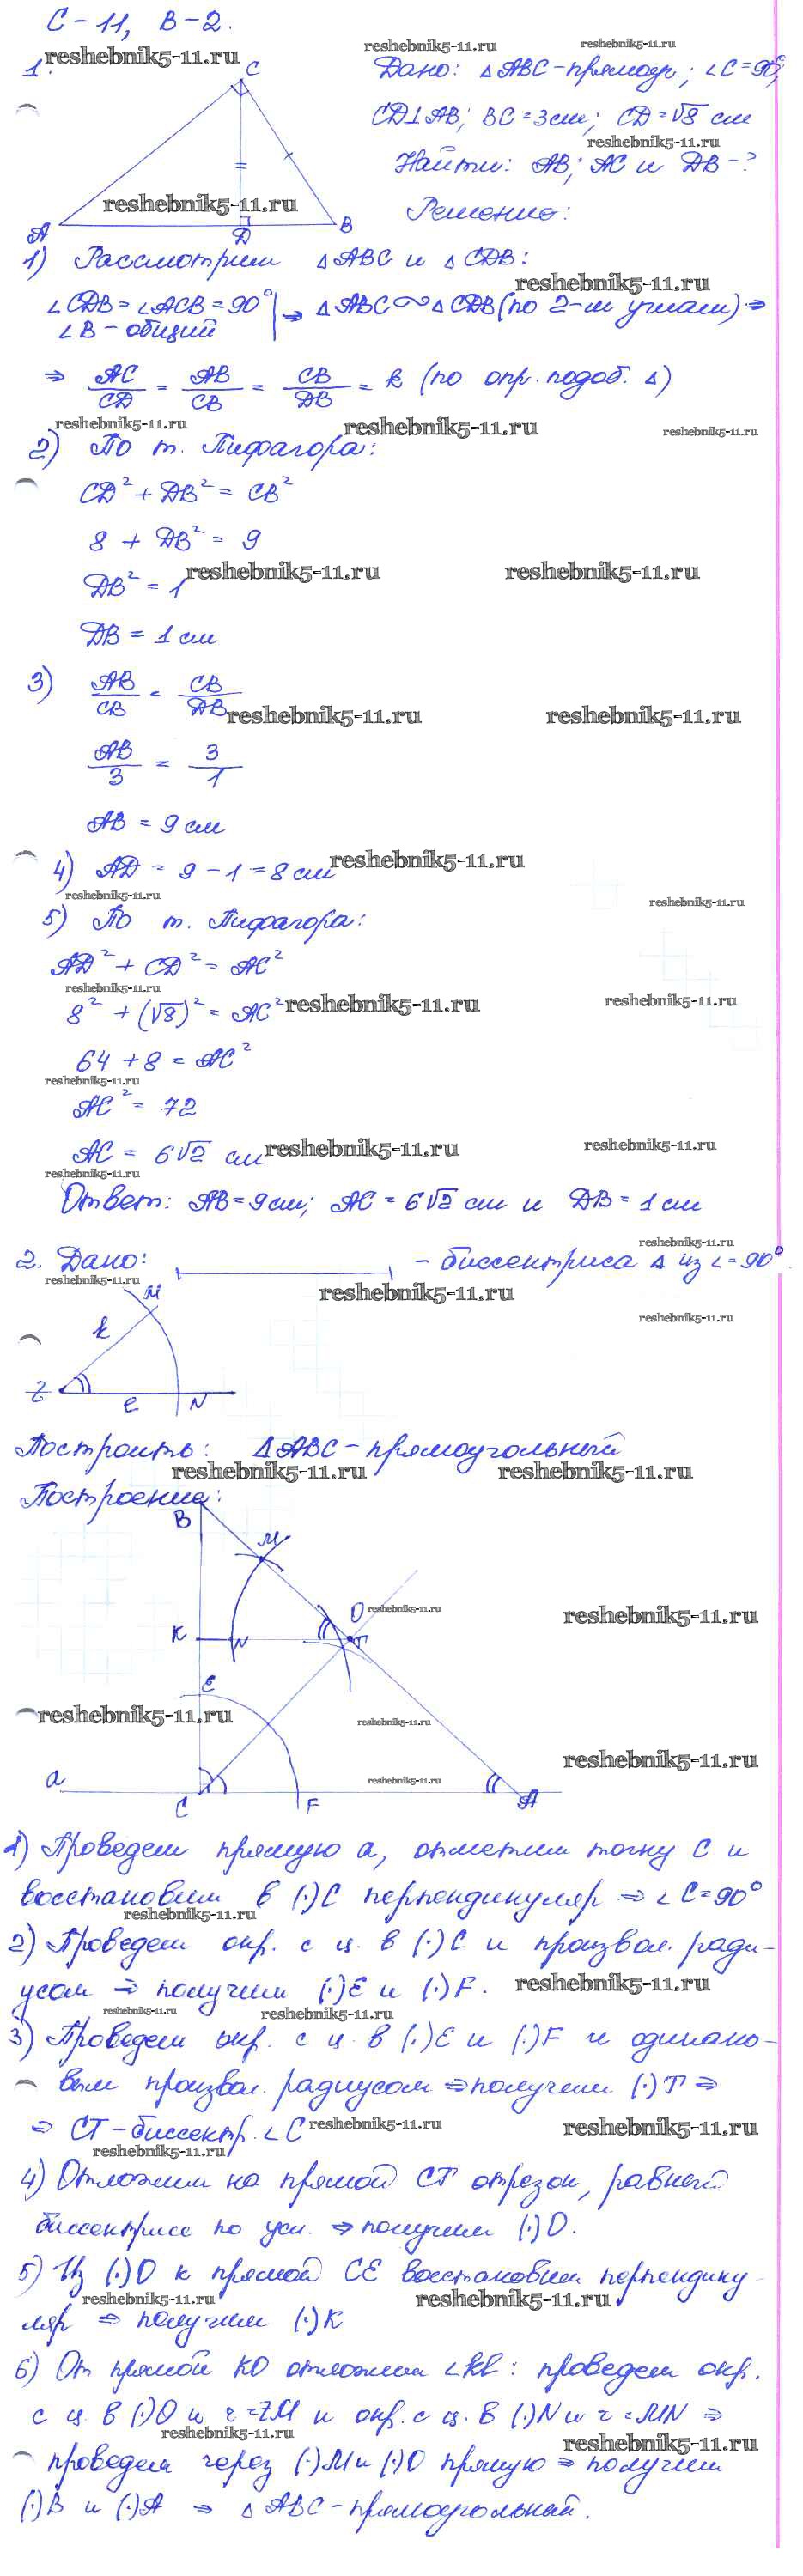 С-11, В-2.
reshebnik5-11.ru reshebnik5-11.ru reshebnik5-11.ru
1. C Дано: △ABC-прямоуг.; ∠C=90°,
CD⊥AB; BC=3см; CD=√8 см
reshebnik5-11.ru
Найти: AB; AC и DB-?
reshebnik5-11.ru
Решение:
A D B
1) Рассмотрим △ABC и △CDB:
reshebnik5-11.ru
∠CDB=∠ACB=90° | ⇒ △ABC∾△CDB (по 2-м углам) ⇒
∠B-общий
⇒ AC/CD = AB/CB = CB/DB = k (по опр. подоб. △)
reshebnik5-11.ru reshebnik5-11.ru reshebnik5-11.ru
2) По т. Пифагора:
CD²+DB²=CB²
8+DB²=9
DB²=1 reshebnik5-11.ru reshebnik5-11.ru
DB=1см
3) AB/CB = CB/DB
reshebnik5-11.ru reshebnik5-11.ru
AB/3 = 3/1
AB=9см
4) AD=9-1=8см reshebnik5-11.ru
reshebnik5-11.ru reshebnik5-11.ru
5) По т. Пифагора:
AD²+CD²=AC²
reshebnik5-11.ru
8²+(√8)²=AC² reshebnik5-11.ru reshebnik5-11.ru
64+8=AC²
reshebnik5-11.ru
AC²=72
AC=6√2 см reshebnik5-11.ru reshebnik5-11.ru
reshebnik5-11.ru
Ответ: AB=9см; AC=6√2 см и DB=1см
reshebnik5-11.ru
2. Дано: - биссектриса △ из ∠=90°
reshebnik5-11.ru reshebnik5-11.ru
M
reshebnik5-11.ru
k
Z e N
Построить: △ABC-прямоугольный
reshebnik5-11.ru reshebnik5-11.ru
Построение:
B
M
O reshebnik5-11.ru reshebnik5-11.ru
K N T
E
reshebnik5-11.ru reshebnik5-11.ru
reshebnik5-11.ru
a reshebnik5-11.ru
C F A
1) Проведем прямую a, отметим точку C и
восстановим в (·)C перпендикуляр ⇒ ∠C=90°
reshebnik5-11.ru
2) Проведем окр. с ц. в (·)C и произвол. ради-
усом ⇒ получим (·)E и (·)F. reshebnik5-11.ru
reshebnik5-11.ru reshebnik5-11.ru
3) Проведем окр. с ц. в (·)E и (·)F и одинако-
вым произвол. радиусом ⇒ получим (·)T ⇒
⇒ CT-биссектр. ∠C reshebnik5-11.ru reshebnik5-11.ru
reshebnik5-11.ru
4) Отложим на прямой CT отрезок, равный
биссектрисе по усл. ⇒ получим (·)O.
5) Из (·)O к прямой CE восстановим перпендику-
reshebnik5-11.ru reshebnik5-11.ru
ляр ⇒ получим (·)K
6) От прямой KO отложим ∠kl: проведем окр.
с ц. в (·)O и r=ZM и окр. с ц. в (·)N и r=MN ⇒
reshebnik5-11.ru reshebnik5-11.ru
проведем через (·)M и (·)O прямую ⇒ получим
(·)B и (·)A ⇒ △ABC-прямоугольный.